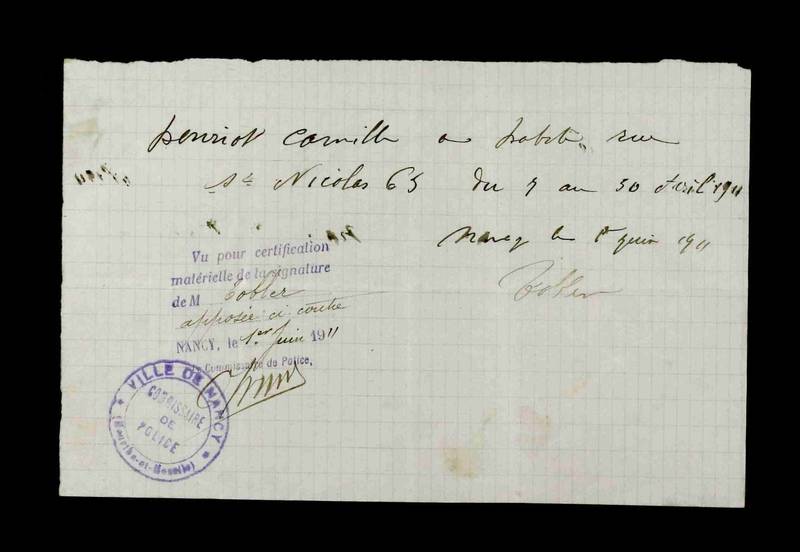 henriot Camille a habité rue
St Nicolas 65 du 5 au 30 Avril 1911
Nancy le 1er juin 1911
Tobler
Vu pour certification
matérielle de la signature
de M Tobler
apposée ci contre
NANCY, le 1er Juin 1911
Le Commissaire de Police,
VILLE DE NANCY
COMMISSAIRE
DE
POLICE
(Meurthe-et-Moselle)